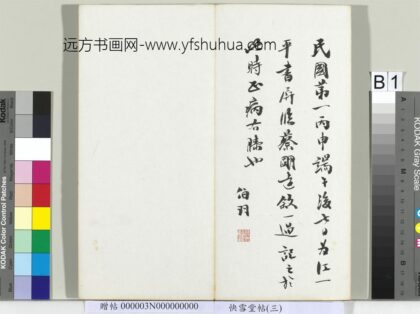 远方书画网-www.yfshuhua.com
民國第一丙申端午後七日為江一
平書屏臨蔡明遠敘一過記之於
此時正病右膝也 伯羽
B 1
Kodak
Color Control Patches
KODAK Gray Scale
贈帖 000003N000000000 快雪堂帖(三)